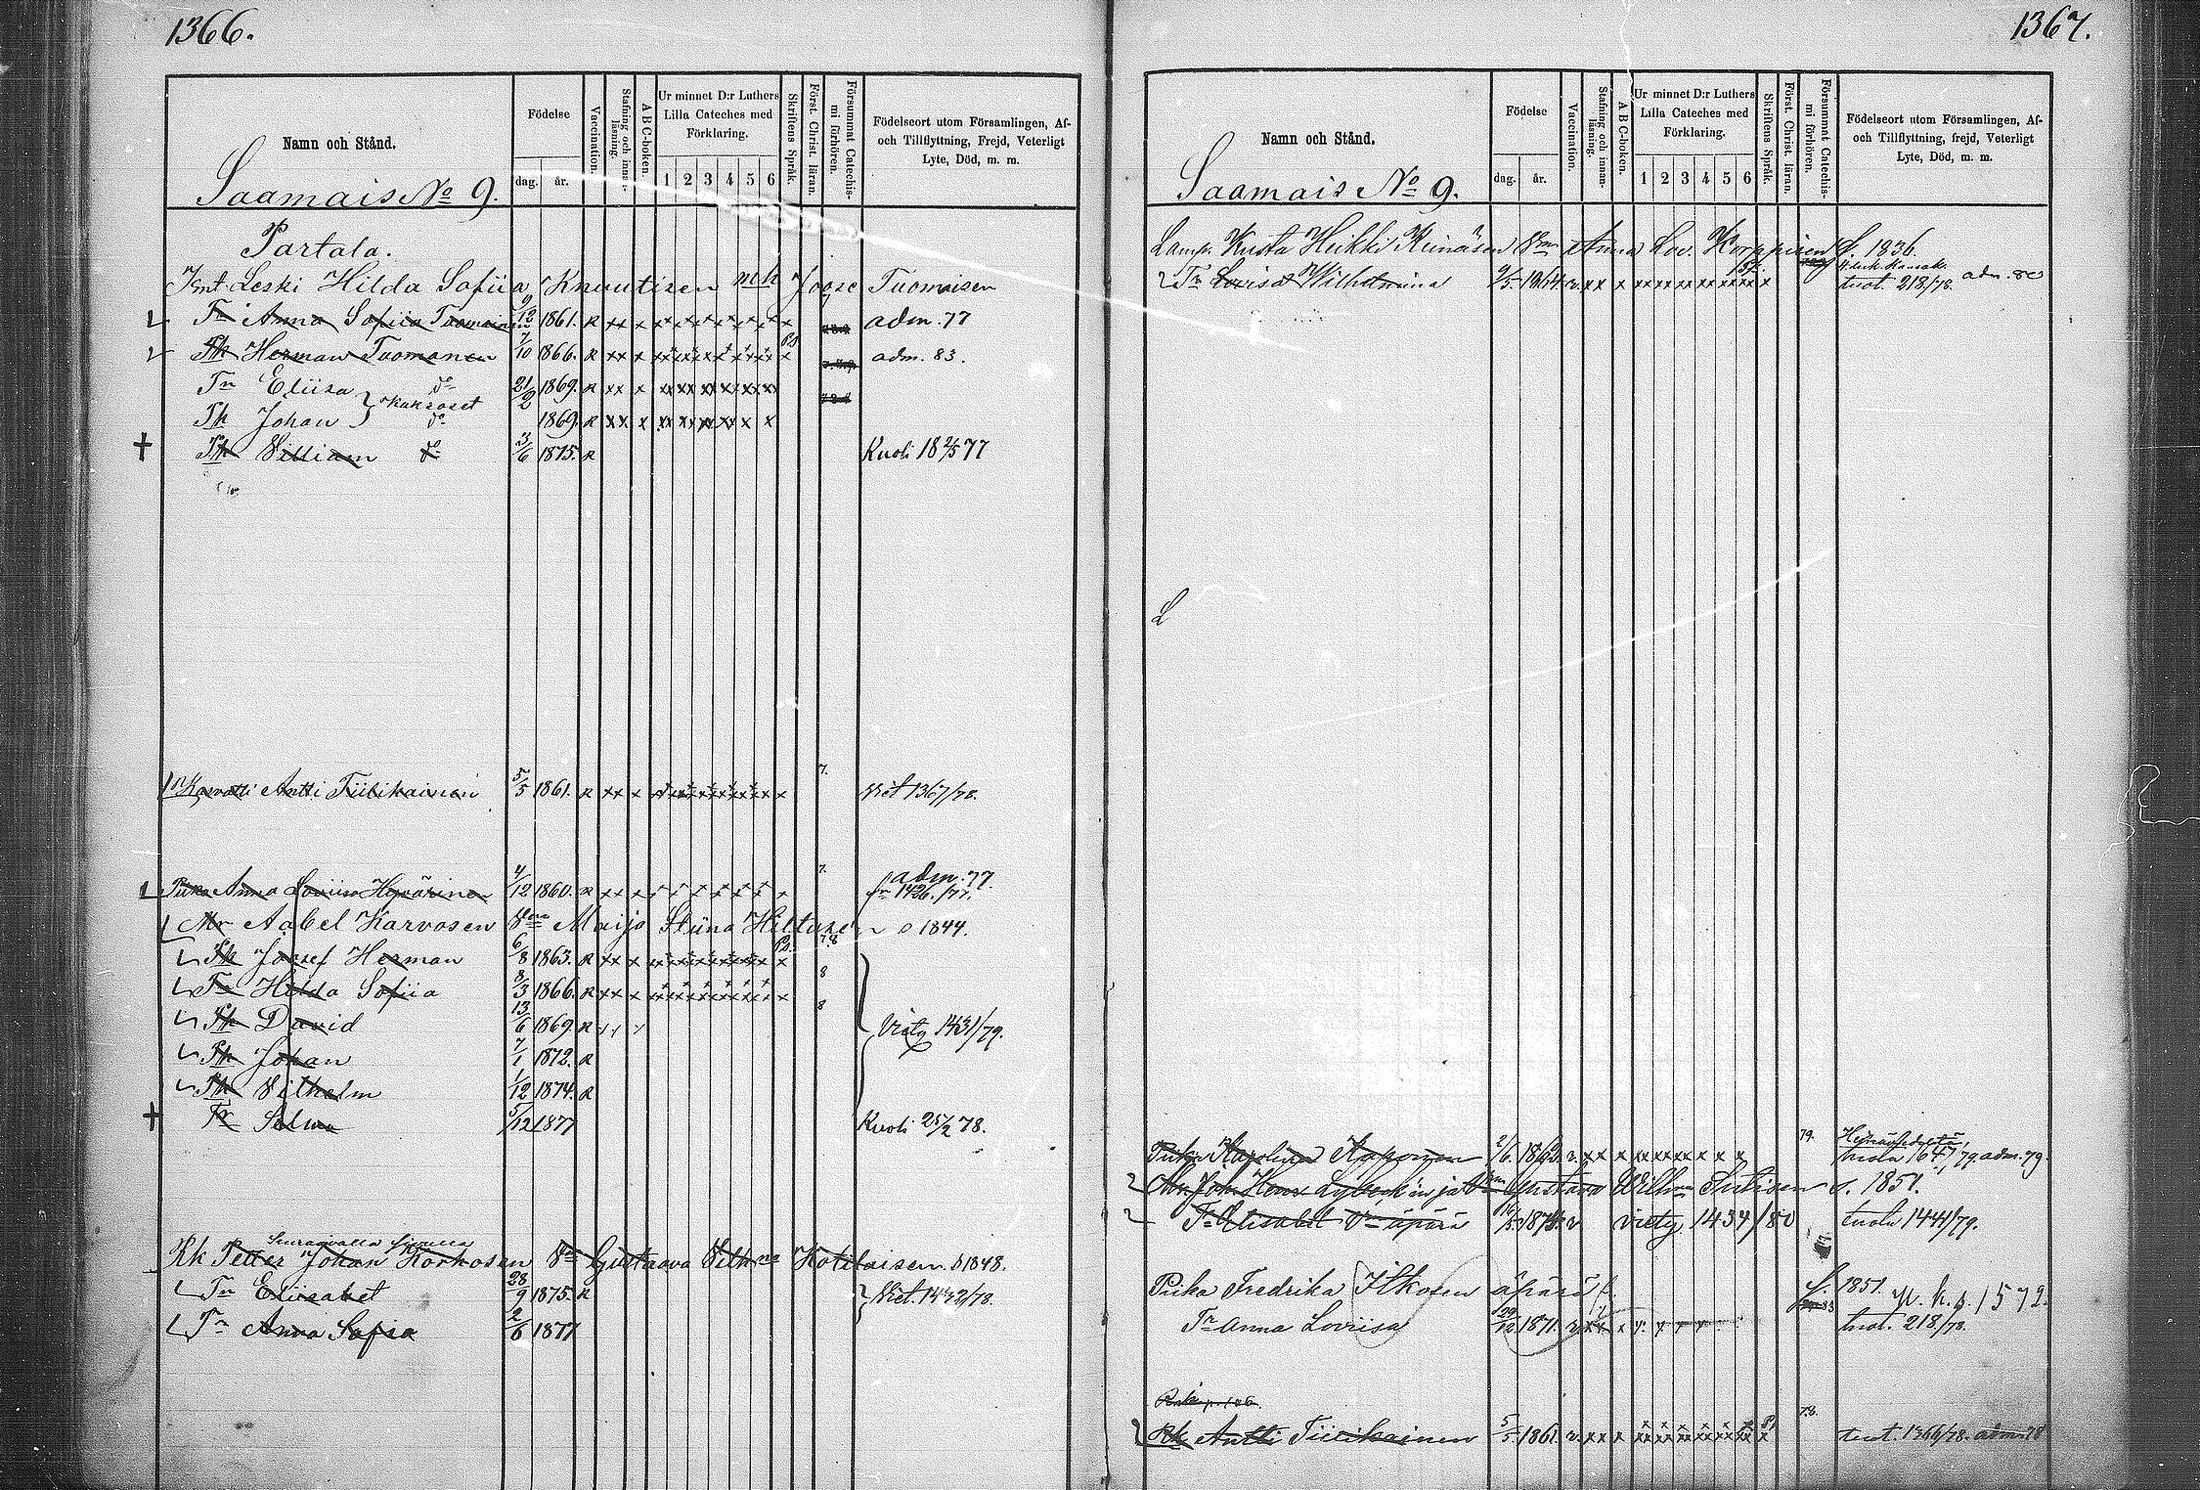 1366.
Namn och Stånd.
Födelse
dag.
år.
Vaccination.
Stafning och innan-läsning.
ABC-boken.
Ur minnet D:r Luthers
Lilla Cateches med
Förklaring.
1 2 3 4 5 6
Skriftens Språk.
Först. Christ. läran.
Försummat Catechis-
mi förhören.
Födelseort utom Församlingen, Af-
och Tillflyttning, Frejd, Veterligt
Lyte, Död, m. m.
Saamais No 9.
Partala.
Leski Hilda Sofiia Knuutisen Joose Tuomaisen
Tr Anna Sofiia 9/12 1861. R xx x adm. 77
Pk Herman Tuomanen 7/10 1866. R xx x adm. 83.
Tr Eliisa do 21/2 1869. R xx x xx xx xx xx xx xx
kaksoset
Pk Johan do 1869. R xx x xx xx xx xx x x
Pk Villiam do 3/6 1875. R Kuoli 18 2/5 77
Antti Tiilikainen 5/5 1861. R xx x 7. Viet 1367/78.
Anna Loviisa Hyvärinen 4/12 1860. R xx x 7. adm. 77.
fr 1426./77.
Mr Aabel Karvosen Vmo Maija Stiina Hiltusen o 1844.
Pk Josef Herman 6/8 1863. R xx x 78
Tr Hilda Sofiia 8/3 1866. R xx x 8
Pk David 13/6 1869. R 8 Viety 1431/79.
Pk Johan 7/1 1872. R
Pk Vilhelm 1/12 1874. R
Tr Selma 5/12 1877 Kuoli 25/2 78.
Rk Petter Johan Korhosen Vmo Gustaava Vilhna Kotilaisen. o 1848.
Tr Eliisabet 28/9 1875. R Viet. 1442/78.
Tr Anna Sofia 2/6 1877
1367.
Namn och Stånd.
Födelse
dag.
år.
Vaccination.
Stafning och innan-läsning.
ABC-boken.
Ur minnet D:r Luthers
Lilla Cateches med
Förklaring.
1 2 3 4 5 6
Skriftens Språk.
Först. Christ. läran.
Försummat Catechis-
mi förhören.
Födelseort utom Församlingen, Af-
och Tillflyttning, frejd, Veterligt
Lyte, Död, m. m.
Saamais No 9.
Lamp. Kusta Heikki Reinäsen Vmo Anna Lov. Korppisen f. 1836.
Tr Lovisa Wilhelmina 9/5 1864 v. xx x tuot. 218/78. adm. 80
L
Karolina Kaponen 2/6. 1862. v. xx x xx xx xx x x x 79. tuotu 1647/79. adm. 79.
Mr. Joh. Henr. Lybeck'in ja Vmo Gustava Wilhna Sutisen s. 1851.
Tr Elisabet Vmo äpärä v viety 1434/80 tuotu 1441/79.
Piika Fredrika Itkosen äpärä f. 1851. p. k. s. 1572.
Tr Anna Loviisa 29/12 1871. v. xx x tuot. 218/78.
Rk Antti Tiilikainen 5/5 1861. v. xx x 78. tuot. 1366/78. adm 78